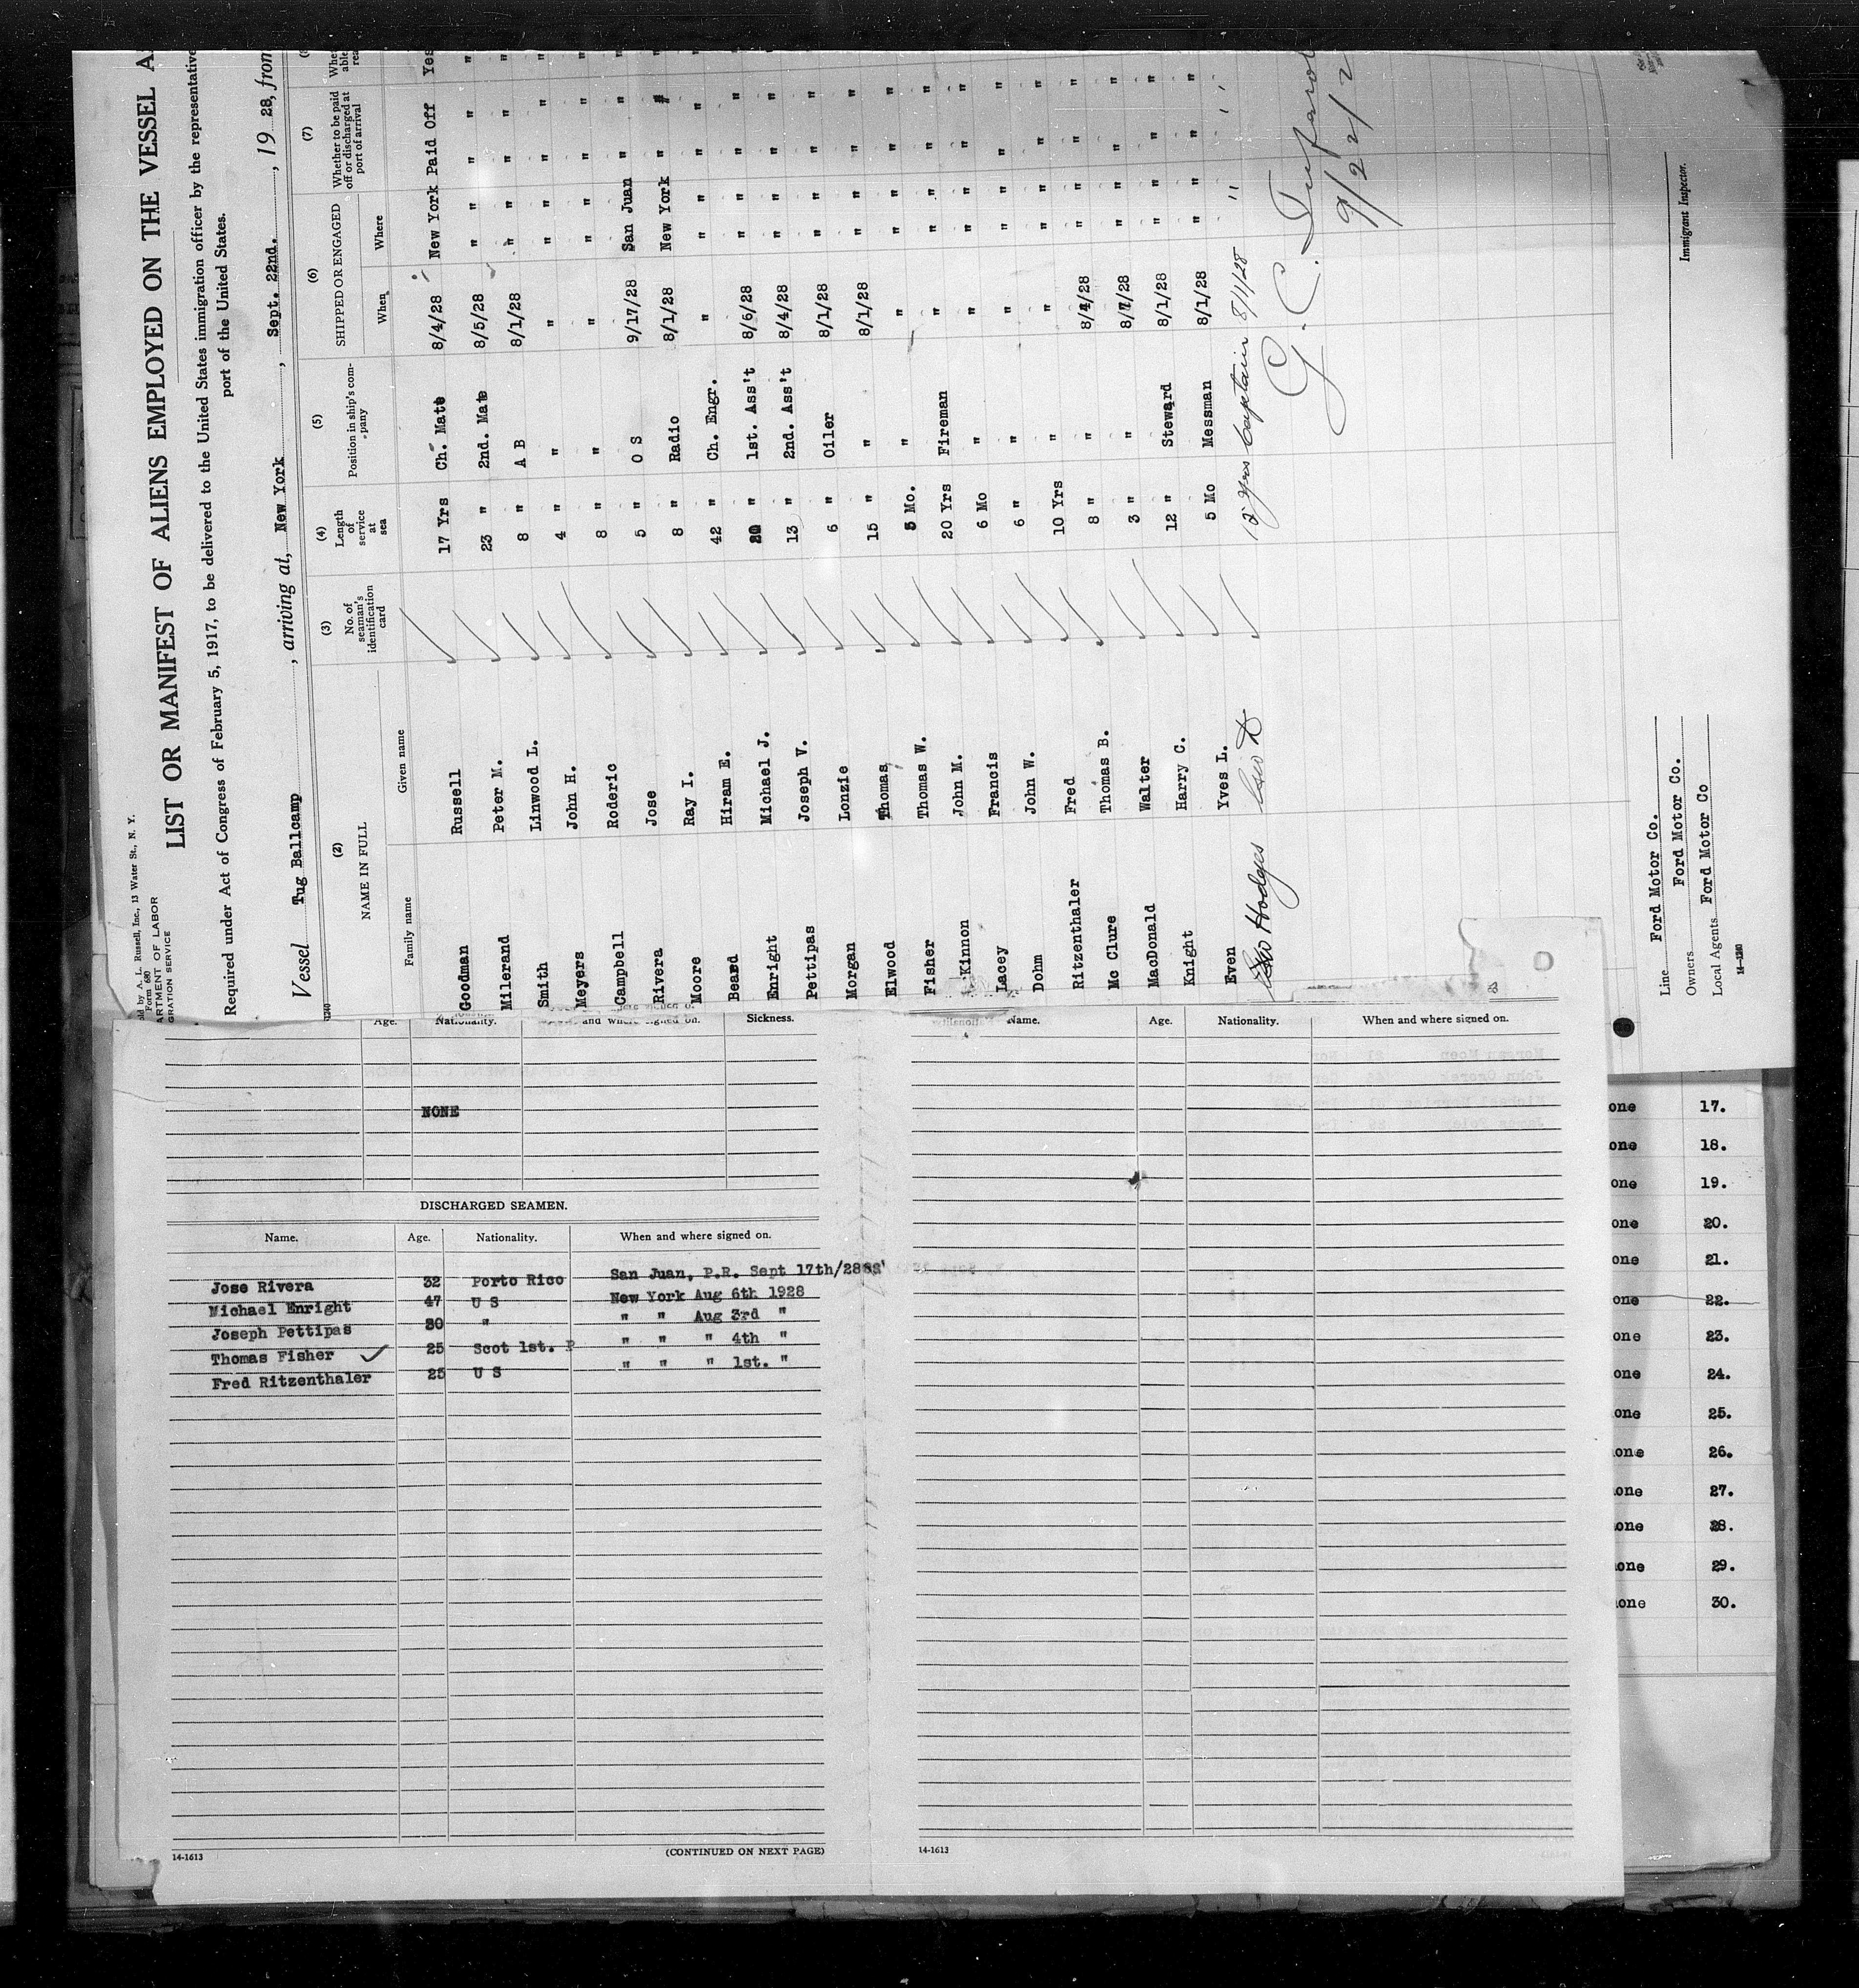 ld by A. L. Russell, Inc., 13 Water St., N. Y.
Form 680
ARTMENT OF LABOR
GRATION SERVICE
LIST OR MANIFEST OF ALIENS EMPLOYED ON THE VESSEL A
Required under Act of Congress of February 5, 1917, to be delivered to the United States immigration officer by the representative
port of the United States.
Vessel Tug Ballcamp, arriving at, New York, Sept. 22nd., 19 28, from
(2) (3) (4) (5) (6) (7)
NAME IN FULL No. of seaman's identification card Length of service at sea Position in ship's com-pany SHIPPED OR ENGAGED Whether to be paid off or discharged at port of arrival
Family name Given name When Where
Goodman Russell 17 Yrs Ch. Mate 8/4/28 New York Paid Off Yes
Milerand Peter M. 23 " 2nd. Mate 8/5/28 " " " " "
Smith Linwood L. 8 " A B 8/1/28 " " " " "
Meyers John H. 4 " " " " " " " "
Campbell Roderic 8 " " " " " " " "
Rivera Jose 5 " O S 9/17/28 San Juan " " "
Moore Ray I. 8 " Radio 8/1/28 New York " " "
Beard Hiram E. 42 " Ch. Engr. " " " " " "
Enright Michael J. 20 " 1st. Ass't 8/6/28 " " " " "
Pettipas Joseph V. 13 " 2nd. Ass't 8/4/28 " " " " "
Morgan Lonzie 6 " Oiler 8/1/28 " " " " "
Elwood Thomas 15 " " 8/1/28 " " " " "
Fisher Thomas W. 3 Mo. " " " " " " "
Kinnon John M. 20 Yrs Fireman " " " " " "
Lacey Francis 6 Mo " " " " " " "
Dohm John W. 6 " " " " " " " "
Ritzenthaler Fred 10 Yrs " " " " " " "
Mc Clure Thomas B. 8 " " 8/4/28 " " " " "
MacDonald Walter 3 " " 8/7/28 " " " " "
Knight Harry C. 12 " Steward 8/1/28 " " " " "
Even Yves L. 5 Mo Messman 8/1/28 " " " " "
Hodges 12 yrs Captain 8/1/28 " " " "
G. C.
9/22/2
Line Ford Motor Co.
Owners Ford Motor Co.
Local Agents Ford Motor Co
Immigrant Inspector.
14-1240
Age. Nationality. and where signed on. Sickness.
NONE
DISCHARGED SEAMEN.
Name. Age. Nationality. When and where signed on.
Jose Rivera 32 Porto Rico San Juan, P.R. Sept 17th/28
Michael Enright 47 U S New York Aug 6th 1928
Joseph Pettipas 30 " " " Aug 3rd "
Thomas Fisher 25 Scot 1st. P " " " 4th "
Fred Ritzenthaler 25 U S " " " 1st. "
14-1613 (CONTINUED ON NEXT PAGE)
Name. Age. Nationality. When and where signed on.
14-1613
one 17.
one 18.
one 19.
one 20.
one 21.
one 22.
one 23.
one 24.
one 25.
one 26.
one 27.
one 28.
one 29.
one 30.